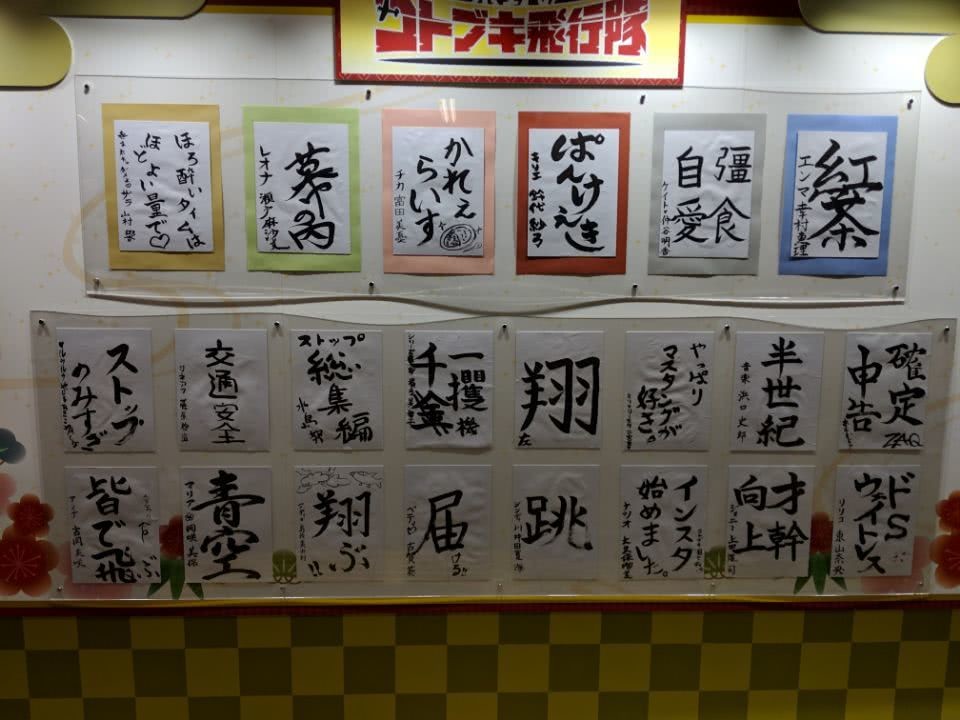 コトブキ飛行隊
紅茶
エンマ 幸村恵理
自愛
彊食
ケイト 仲谷明香
ぱんけえき
キリエ 鈴代紗弓
かれえ
らいす
チカ 富田美憂
幕内
レオナ 瀬戸麻沙美
ほろ酔いタイムは
ほどよい量で♡
ザラ 山村響
確定
申告
ZAQ
半世紀
音楽 浜口史郎
やっぱり
マスタングが
好き。
翔
左
一攫
千
機
ストップ
総集編
水島
交通安全
ストップ
のみすぎ
ドS
ウェイトレス
リリコ 東山奈央
才幹
向上
インスタ
始めました。
跳
届
ける!!
翔ぶ
!!
青空
皆で飛
ぶ